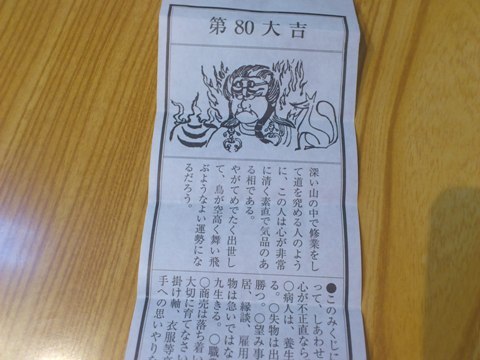 第80大吉
深い山の中で修業をし
て道を究める人のよう
に、この人は心が非常
に清く素直で気品のあ
る相である。
やがてめでたく出世し
て、鳥が空高く舞い飛
ぶようなよい運勢にな
るだろう。
●このみくじに
って、しあわ
心が不正直なら
○病人は、養生
る。○失物は出
勝つ。○望み事
居、縁談、雇用
物は急いではな
九生きる。○職
○商売は落ち着い
大切に育てなさい
掛け軸、衣服等
手への思いやりな